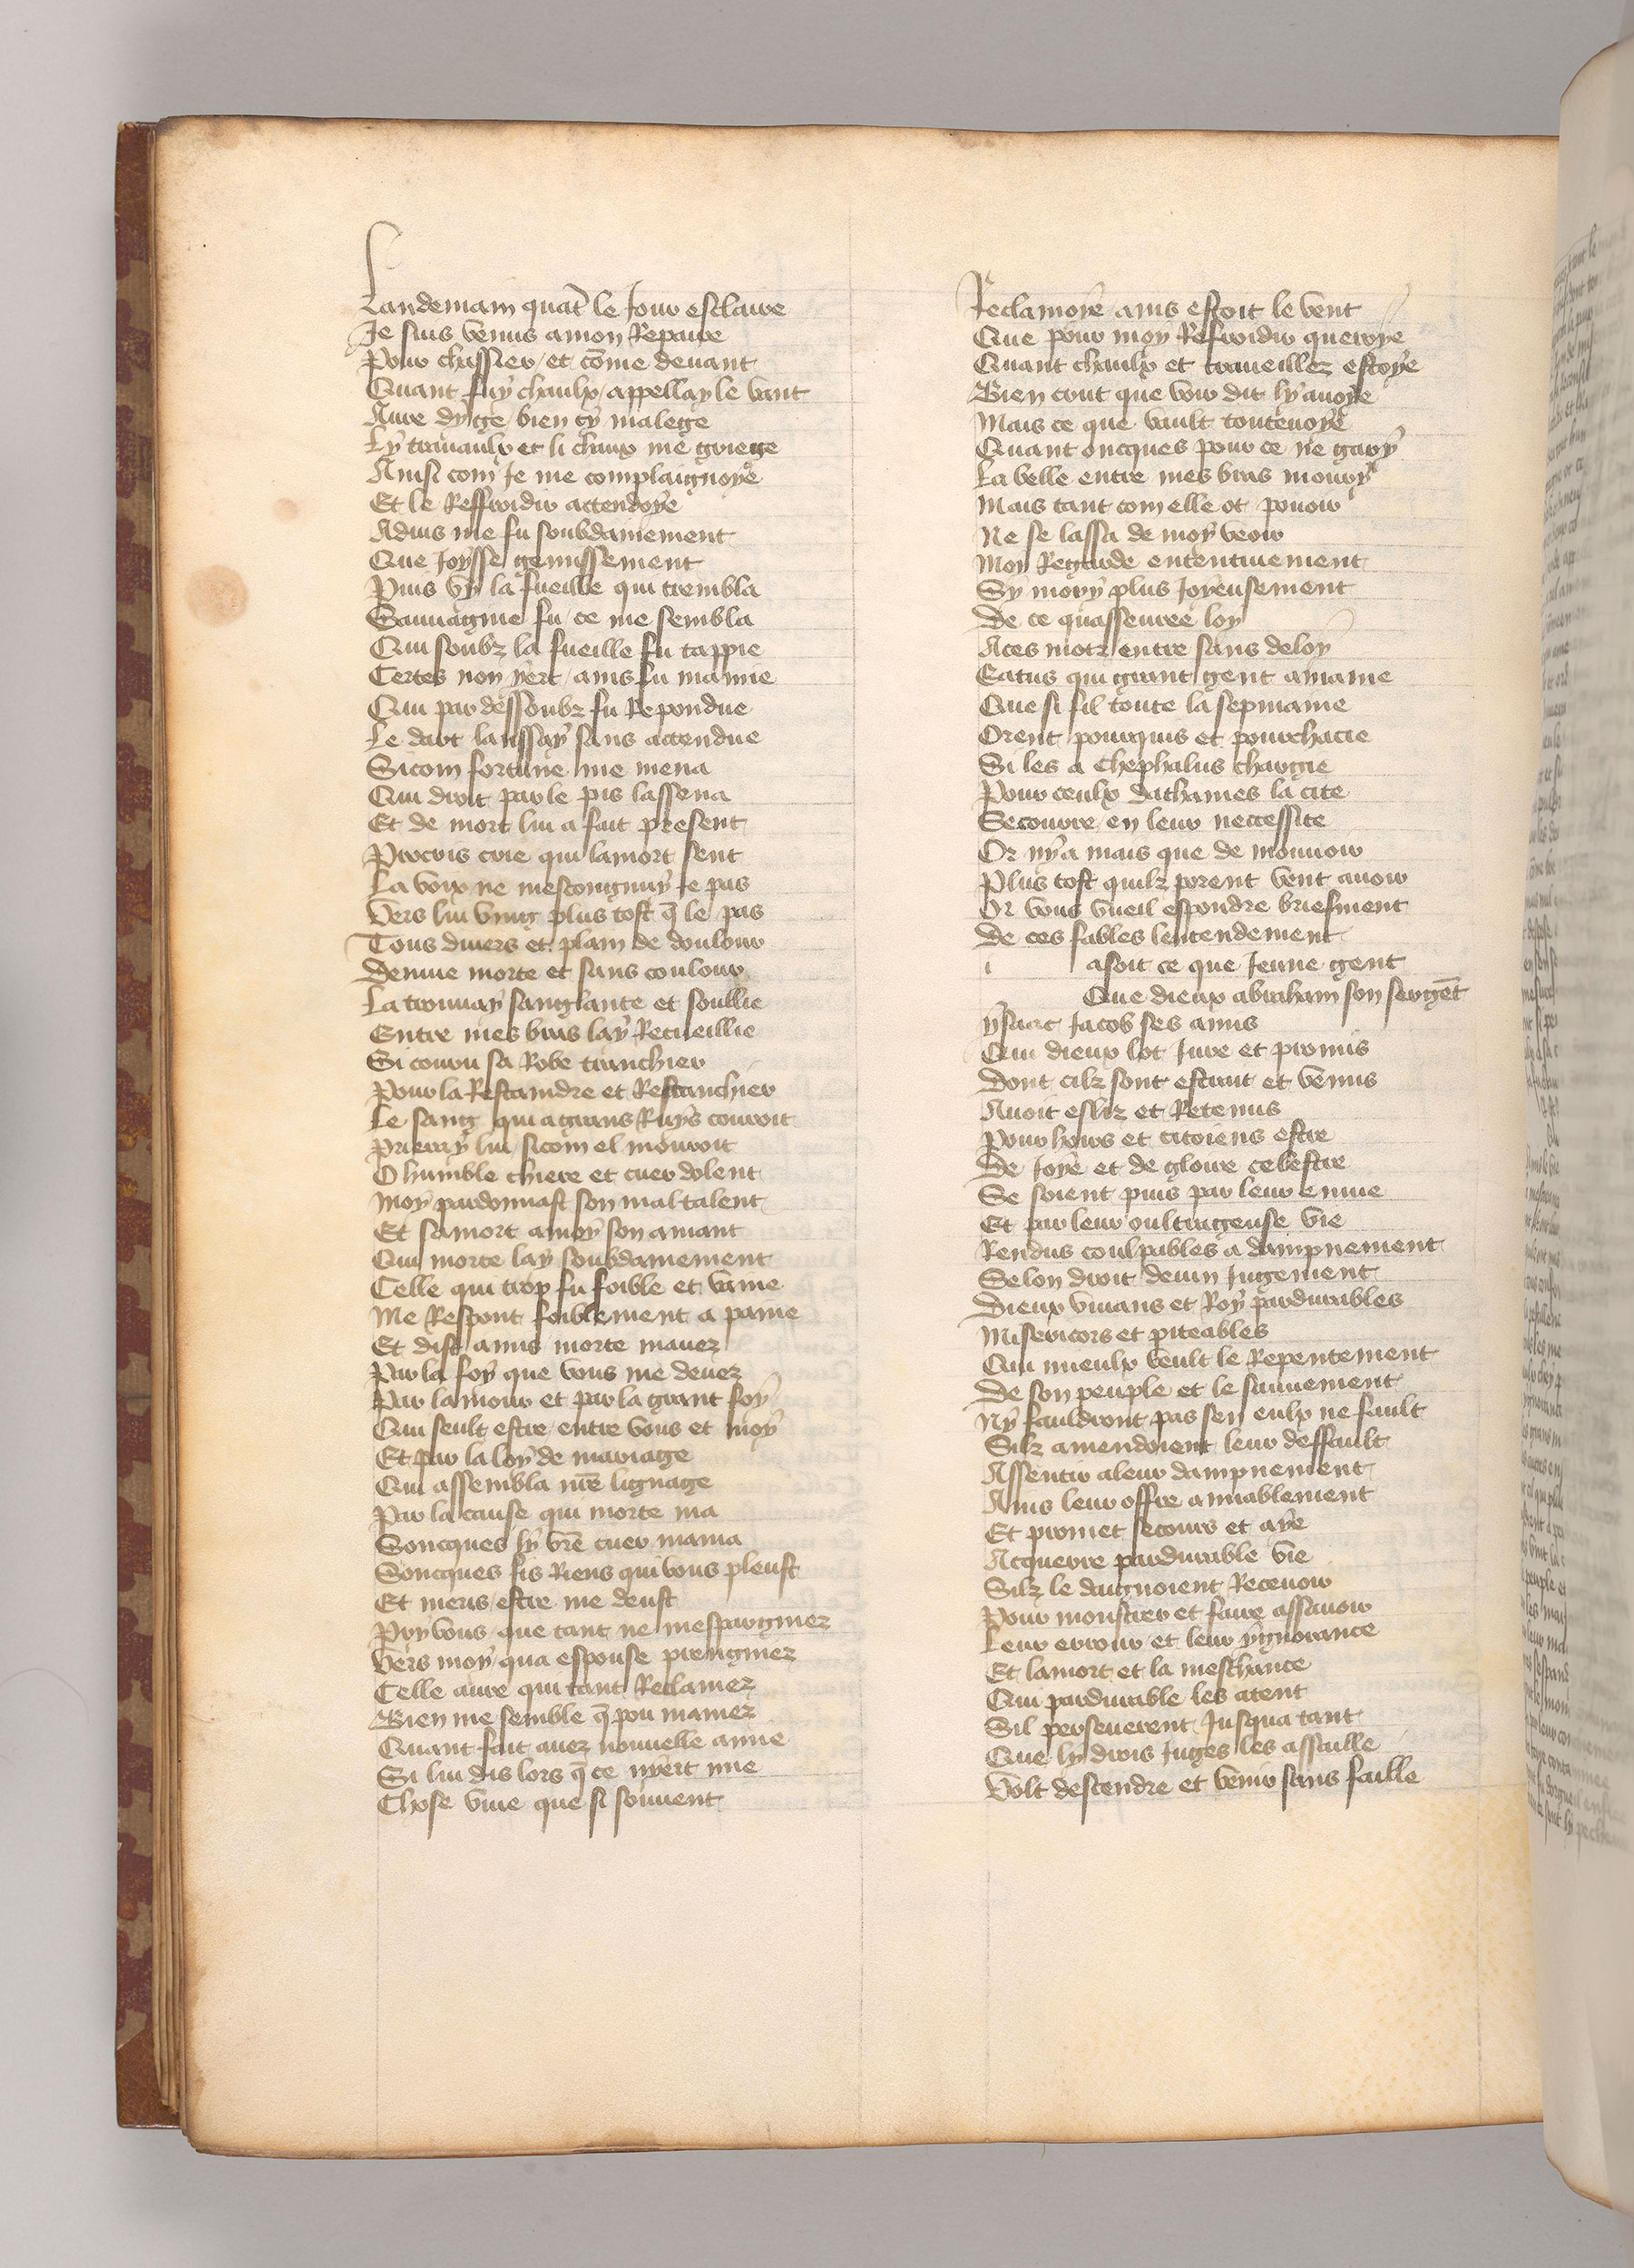 Landemain quāt le Jour esclaire
Je suis venus a mon Repaire
Pour chassier / et cōme devant
Quant fuy chaulx / appellay le vant
Aure dy ge / bien cy malege
Ly travaulx et li chaux me griege
Ainsi com Je me complaignoye
Et le Reffroidir attendoye
Advis me fu soubdainement
Que Joysse gemissement
Puis vy la fueille qui trembla
Sauvagine fu / ce me sembla
Qui soubz la fueille fu tappie
Certes non yert / ains fu mamie
Qui par dessoubz fu Repondue
Le dart laissay sans attendue
Sicom fortune me mena
Qui droit par le pis lassena
Et de mort lui a fait present
Procris crie qui lamort sent
La voix ne mescongnuy Je pas
Vers lui ving plus tost q̄ le pas
Tous divers et plain de doulour
Demie morte et sans coulour
La trouvay sanglante et soullie
Entre mes bras lay Recueillie
Si couru sa Robe tranchier
Pour la Restaindre et Restanchier
Le sang qui a grans Ruys couroit
Prieray lui / sicom el mouroit
O humble chiere et cuer dolent
Moy pardonnast son mal talent
Et sa mort a moy son amant
Qui morte lay soubdainement
Celle qui trop fu foible et vaine
Me Respont foiblement a paine
Et dist amis morte mavez
Par la foy que vous me devez
Par lamour et par la grant foy
Qui seult estre entre vous et moy
Et par la loy de mariage
Qui assembla nr̄e lignage
Par la cause qui morte ma
Soncques ly vr̄e cuer mama
Soncques fis Riens qui vous pleust
Et meris estre me deust
Pry vous que tant ne mespargniez
Vers moy qua espouse preigniez
Celle aure qui tant Reclamez
Bien me semble q̄ pou mamez
Quant fait avez nouvelle amie
Si lui dis lors q̄ ce nyert mie
Chose vive que si souvent
Reclamoye ains estoit le vent
Que pour moy Refroidir queroye
Quant chaulx et traveillez estoye
Bien cout que voir dit ly avoye
Mais ce que vault toutevoye
Quant oncques pour ce ne gary
La belle entre mes bras moury
Mais tant com elle ot povoir
Ne se lassa de moy veoir
Moy Regarde ententivement
Sy mory plus Joyeusement
De ce quasseuree loy
A ces motz entre sans deloy
Eatus qui grant gent amaine
Que si fil toute la sepmaine
Orent pourquis et pourchacie
Si les a Chephalus chargie
Pour ceulx dathaines la cite
Secourre en leur neccessite
Or ny a mais que de mouvoir
Plus tost quilz porent vent avoir
Or vous vueil espondre briefment
De ces fables lentendement
i asoit ce que Jeune gent
Que dieux abraham son sergēt
ysaac Jacob ses amis
Qui dieux lot Jure et promis
Dont cilz sont estrait et venus
Avoit esliz et Retenus
Pour hoirs et citoiens estre
De Joye et de gloire celestre
Se soient puis par leur envie
Et par leur oultrageuse vie
Rendus coulpables a dampnement
Selon droit devin Jugement
Dieux vivans et Roy pardurables
Misericors et piteables
Qui mieulx veult le Repentement
De son peuple et le sauvement
Ny fauldront pas sen eulx ne fault
Silz amendoient leur deffault
Assentir a leur dampnement
Ains leur offre amiablement
Et promet secours et aye
Acquerre pardurable vie
Silz le daignoient Recevoir
Pour monstrer et faire assavoir
Leur errour et leur ygnorance
Et lamort et la meschance
Qui pardurable les atent
Sil perseverent Jusqua tant
Que ly drois Juges les assaille
Volt descendre et venir sans faille